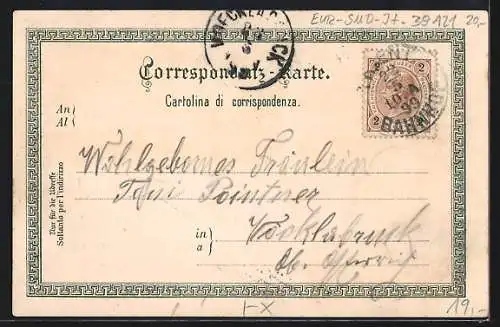 EUR-SUD-It- 39A21 20,-
VOECKLABRUCK
Correspondenz-Karte.
Cartolina di corrispondenza.
2 2
2
BAHNHOF
An
Al
Nur für die Adresse
Soltanto per l'indirizzo
Wohlgebornes Fräulein
Toni Pointner
in Vöcklabruck
a Ob. Österreich
-x 19,-